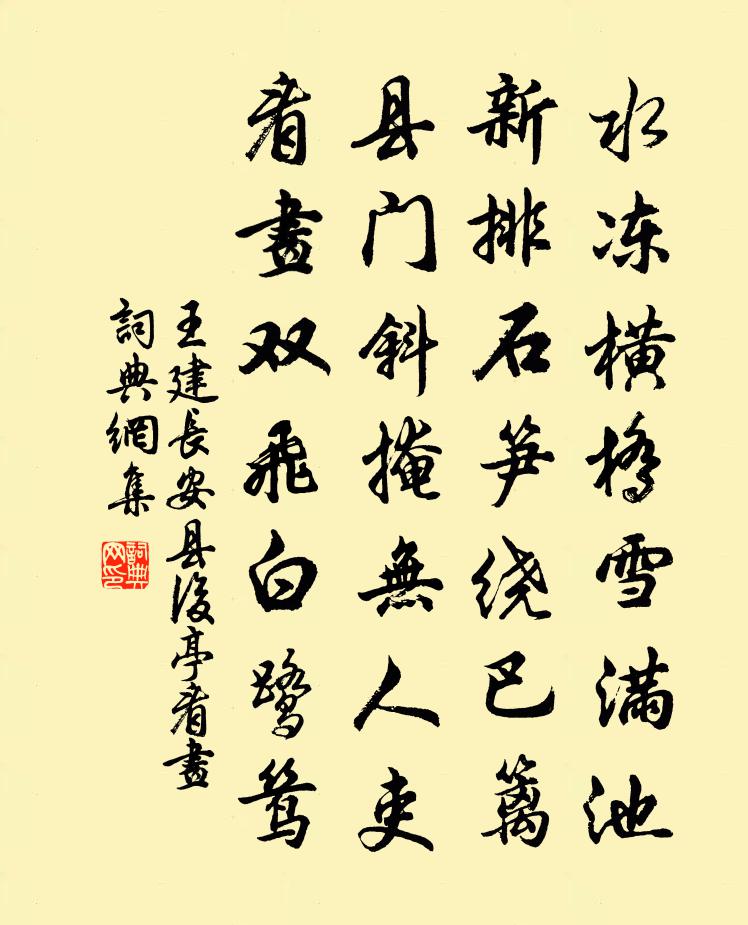 水冻横桥雪满池
新排石笋绕巴篱
县门斜掩無人吏
看畫双飞白鹭鸶
王建長安县後亭看畫
詞典網集
詞典网印